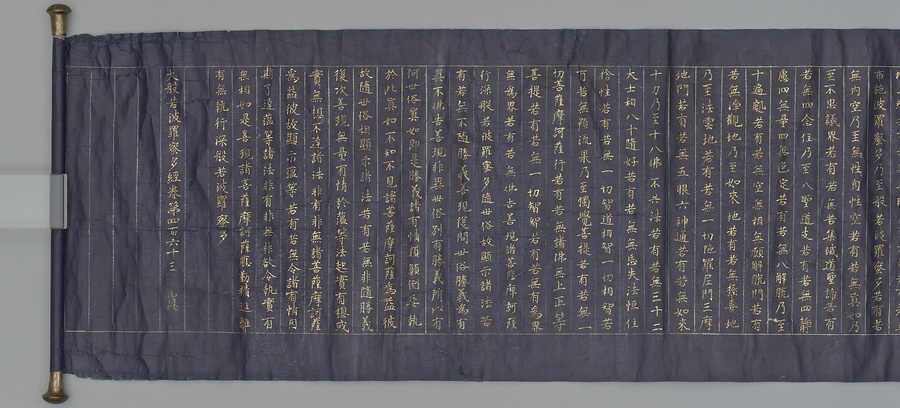 布施波羅蜜多乃至般若波羅蜜多若有若
無內空乃至無性自性空若有若無真如乃
至不思議界若有若無苦集滅道聖諦若有
若無四念住乃至八聖道支若有若無四靜
慮四無量四無色定若有若無八解脫乃至
十遍處若有若無空無相無願解脫門若有
若無淨觀地乃至如來地若有若無極喜地
乃至法雲地若有若無一切陁羅尼門三摩
地門若有若無五眼六神通若有若無如來
十力乃至十八佛不共法若有若無三十二
大士相八十隨好若有若無無忘失法恒住
捨性若有若無一切智道相智一切相智若
有若無預流果乃至獨覺菩提若有若無一
切菩薩摩訶薩行若有若無諸佛無上正等
菩提若有若無一切智智若有若無有為界
無為界若有若無佛告善現諸菩薩摩訶薩
行深般若波羅蜜多隨世俗故顯示諸法若
有若無不隨勝義善現復問世俗勝義為有
異不佛告善現非異世俗別有勝義所以者
何世俗真如即是勝義諸有情類顛倒妄執
於此真如不知不見諸菩薩摩訶薩為益彼
故隨世俗相顯示諸法若有若無非隨勝義
復次善現無量有情於蘊等法起實有想或
實無想不達諸法非有非無諸菩薩摩訶薩
為益彼故顯示蘊等若有若無令諸有情因
斯了達蘊等諸法非有非無非欲令執實有
無相如是善現諸菩薩摩訶薩應勤精進離
有無執行深般若波羅蜜多
大般若波羅蜜多經卷第四百六十三